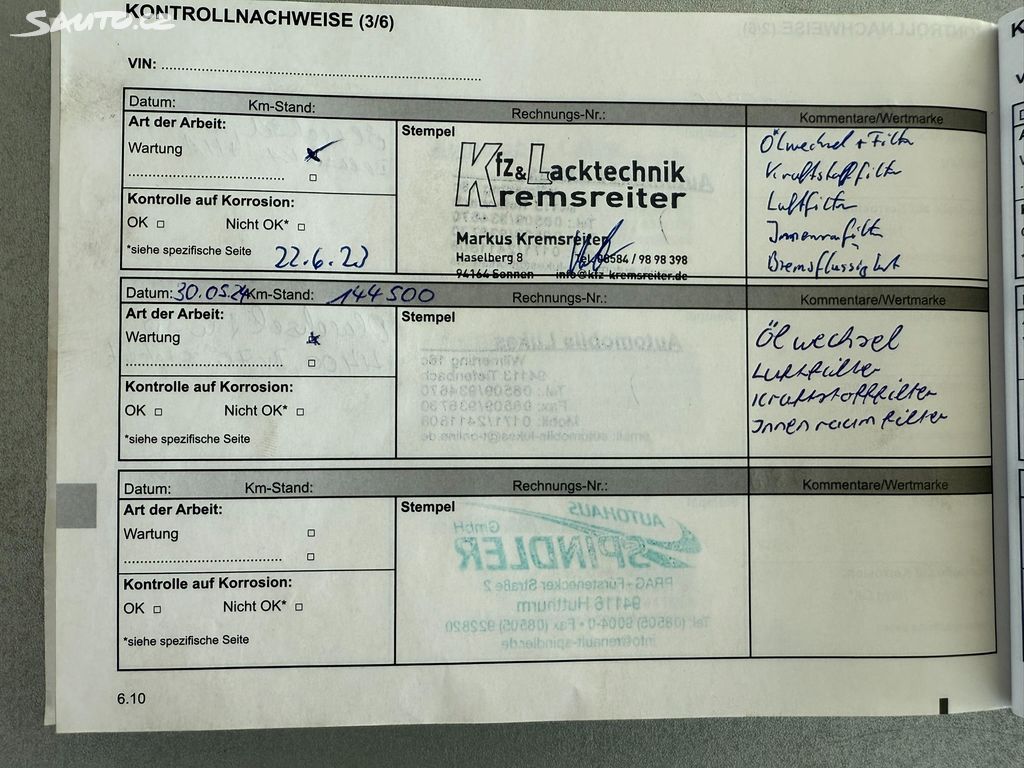 Sauto.cz
KONTROLLNACHWEISE (3/6)
VIN:
Datum: Km-Stand: Rechnungs-Nr.: Kommentare/Wertmarke
Art der Arbeit:
Wartung
Kontrolle auf Korrosion:
OK Nicht OK*
*siehe spezifische Seite 22.6.23
Stempel
Kfz & Lacktechnik
Kremsreiter
Markus Kremsreiter
Haselberg 8 Tel. 08584 / 98 98 398
94164 Sonnen info@kfz-kremsreiter.de
Ölwechsel + Filter
Kraftstofffilter
Luftfilter
Innenraumfilter
Bremsflüssigkeit
Datum: 30.05.24 Km-Stand: 144500 Rechnungs-Nr.: Kommentare/Wertmarke
Art der Arbeit:
Wartung
Kontrolle auf Korrosion:
OK Nicht OK*
*siehe spezifische Seite
Stempel
Automobile Lukas
Wimmerling 16c
94113 Tiefenbach
Tel.: 08509/934670
Fax: 08509/936730
Mobil: 0171/2411608
email: automobile-lukas@t-online.de
Ölwechsel
Luftfilter
Kraftstofffilter
Innenraumfilter
Datum: Km-Stand: Rechnungs-Nr.: Kommentare/Wertmarke
Art der Arbeit:
Wartung
Kontrolle auf Korrosion:
OK Nicht OK*
*siehe spezifische Seite
Stempel
AUTOHAUS
SPINDLER GmbH
PRAG - Fürstenecker Straße 2
94116 Hutthurm
Tel. (08505) 9004-0 • Fax (08505) 922820
info@renault-spindler.de
6.10